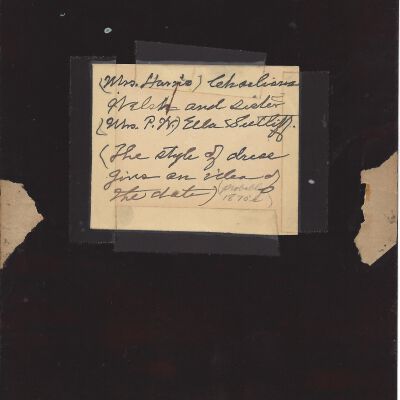 (Mrs. Hargis)
Welsh and sister
(Mrs. P. W.) Ella Sutliff.
(The style of dress
gives an idea of
the date) (probably
1870's)